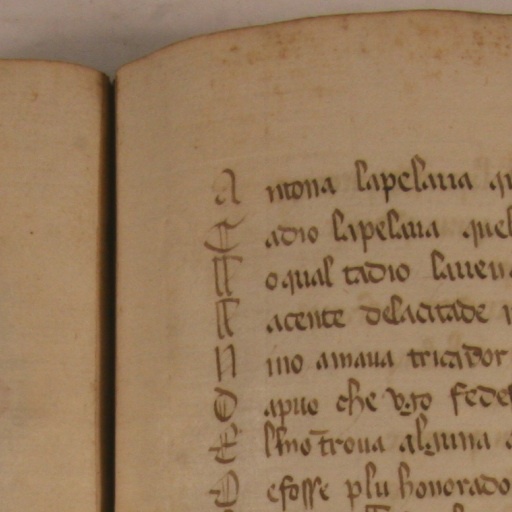 A ntona lapelaua qu
E adio lapelaua quel
F oqual tadio laueua
F acente delacitade
N ino amaua tricador
D apuo che vgo fede
E lsino troua alguna
D efosse plu honorado